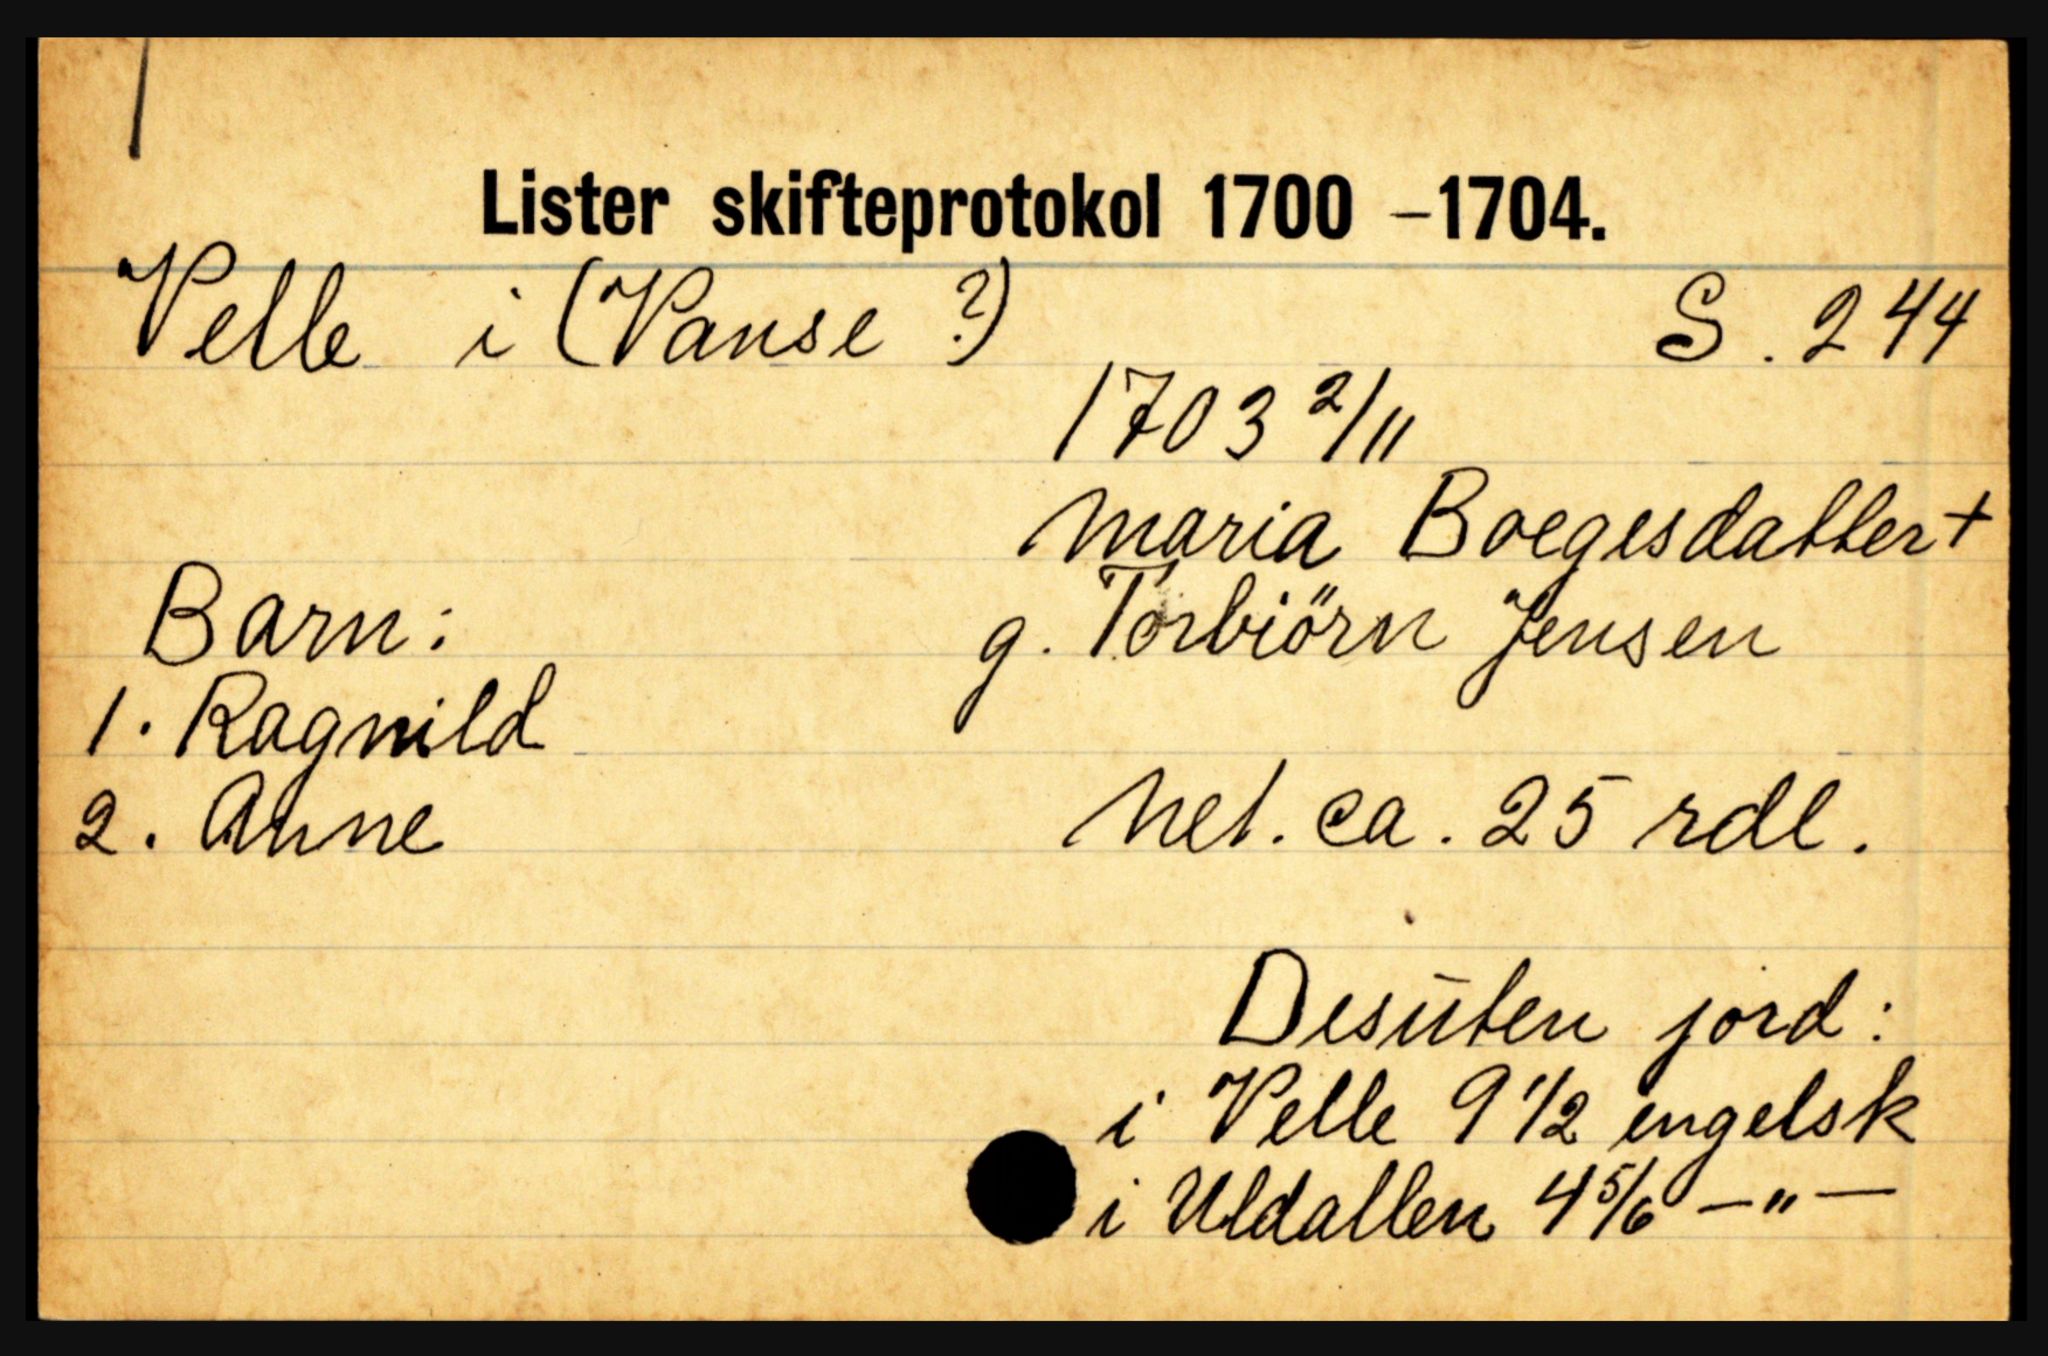 Lister skifteprotokol 1700 –1704.
Velle i (Vanse ?) S. 244
1703 2/11
Maria Boegesdatter +
Barn: g. Torbiörn Jensen
1. Ragnild
2. Anne Net. ca. 25 rdl.
Desuten jord:
i Velle 9 1/2 engelsk
i Uldallen 4 5/6 — " —